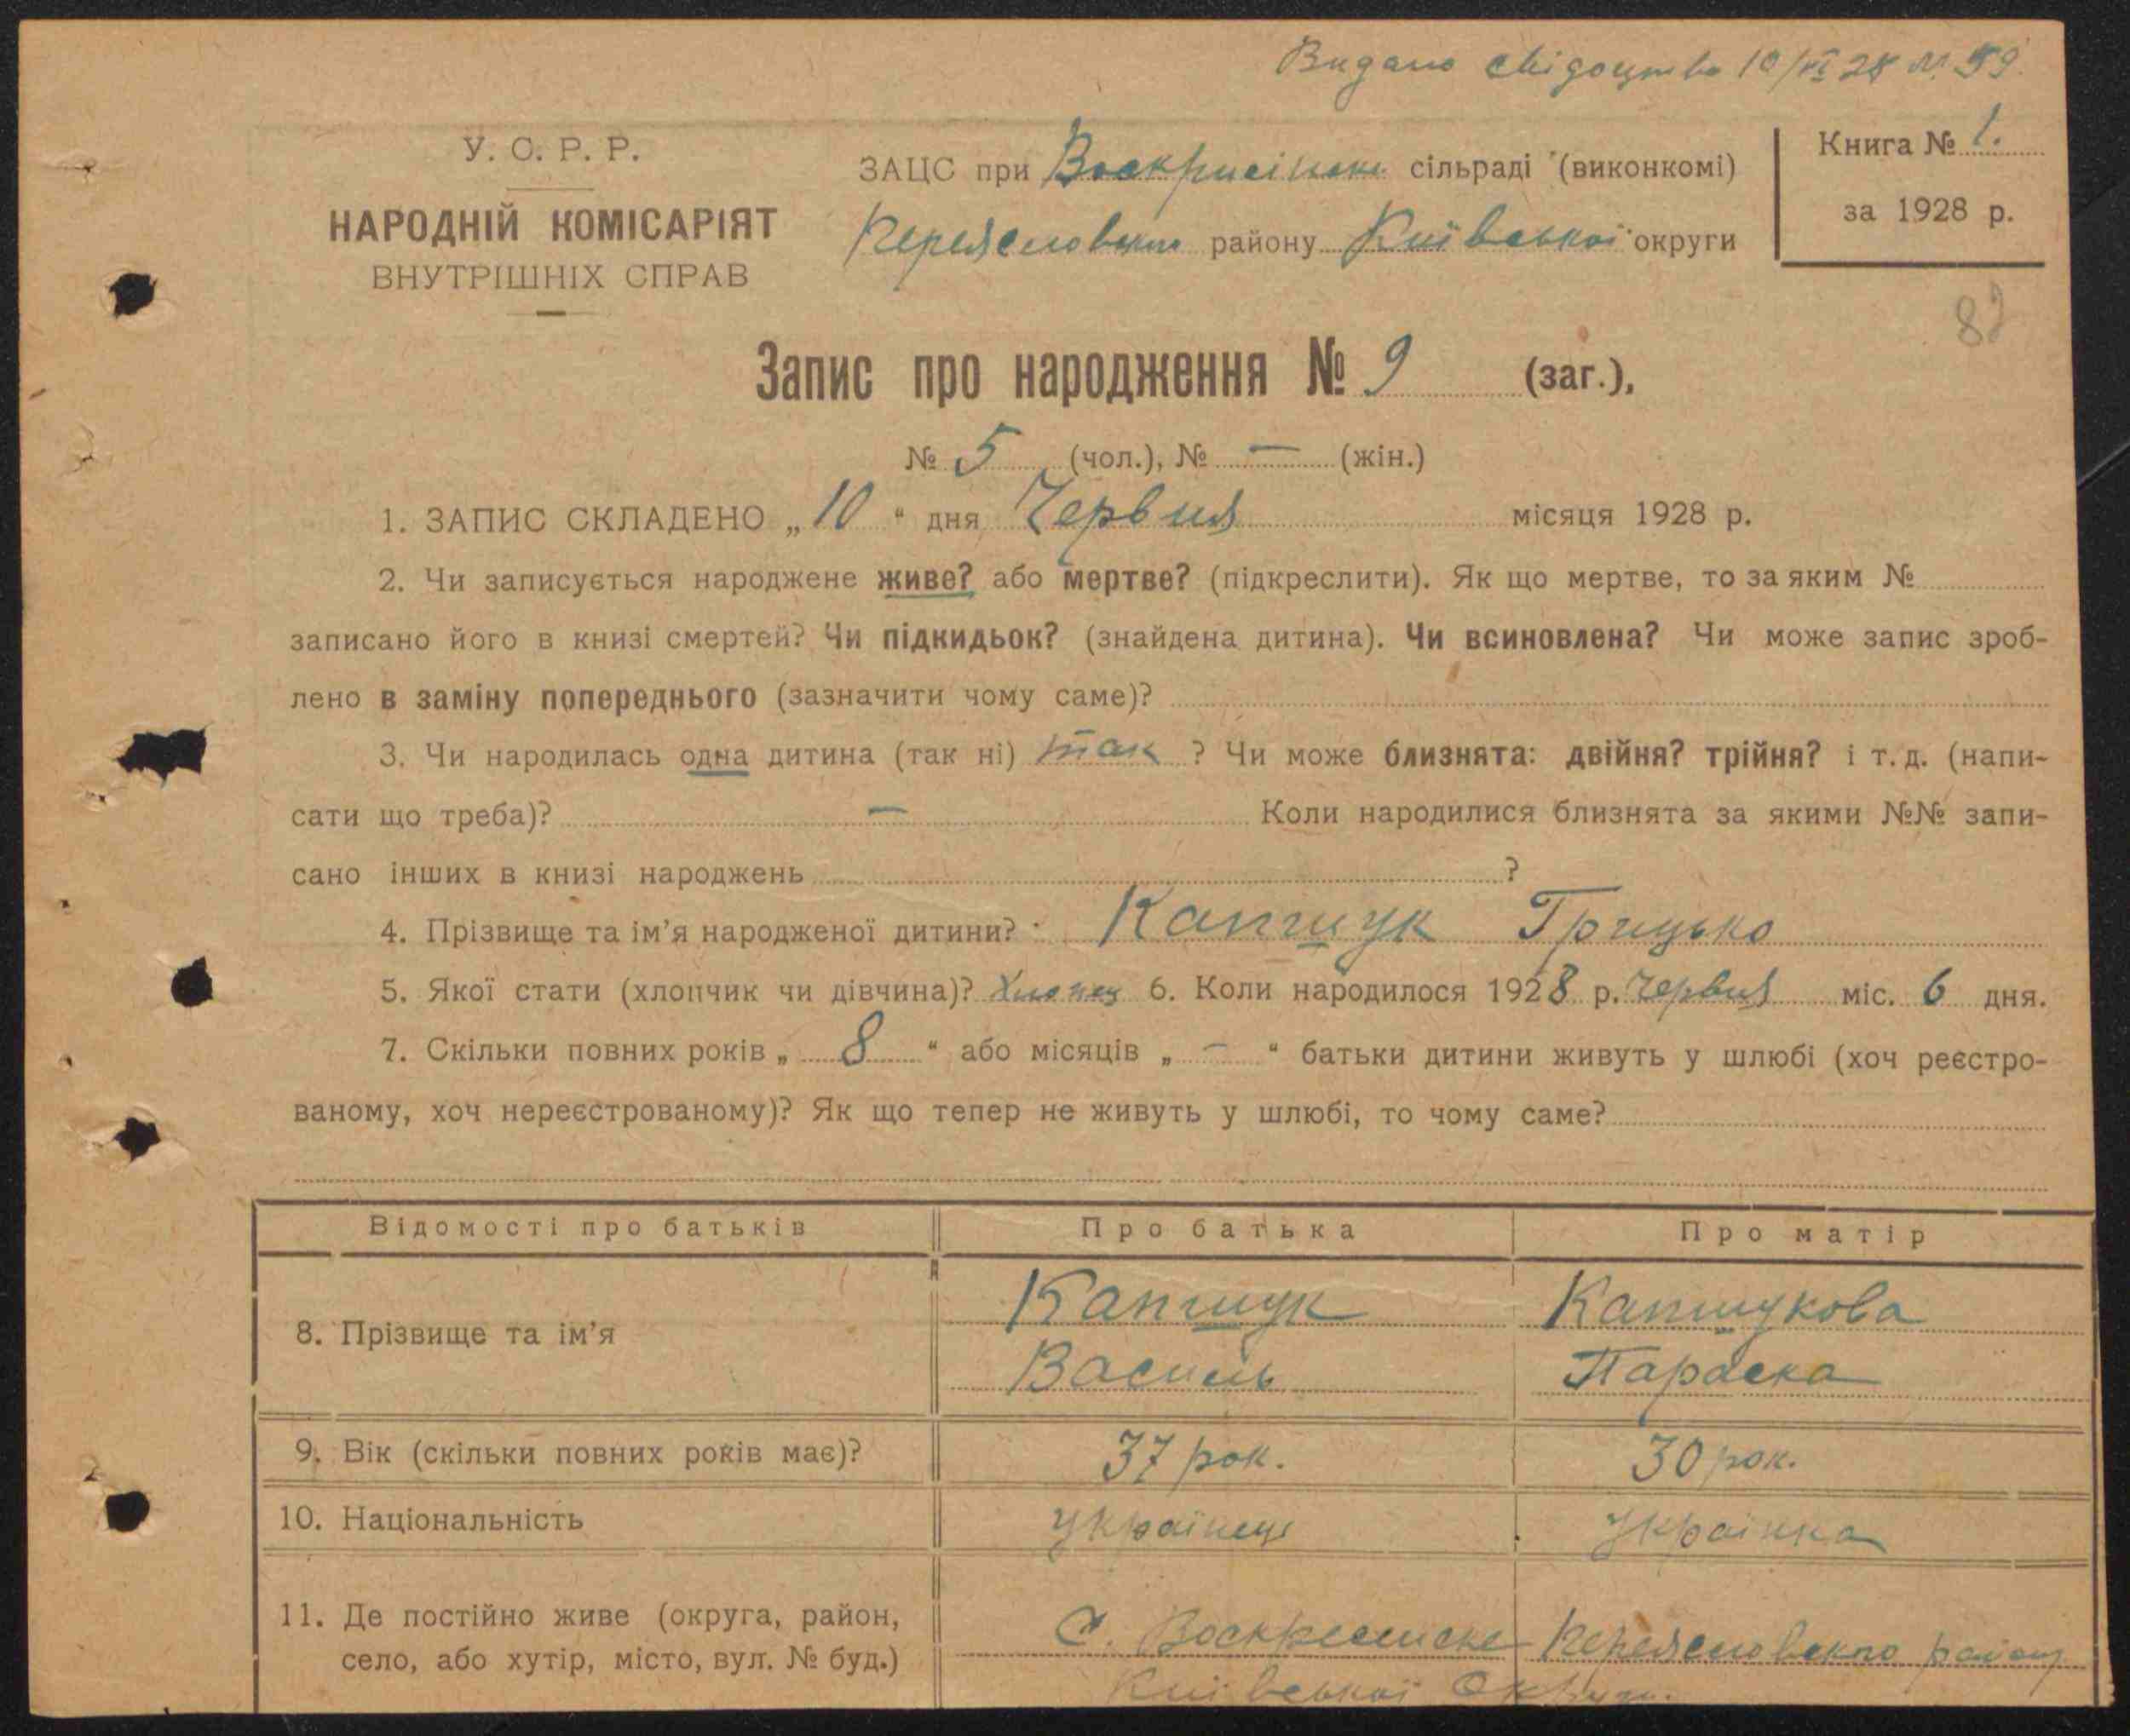 Видано свідоцтво 10/VI 28 № 59.
У. С. Р. Р.
НАРОДНІЙ КОМІСАРІЯТ
ВНУТРІШНІХ СПРАВ
ЗАЦС при сільраді (виконкомі)
району Київської округи
Книга № 1.
за 1928 р.
Запис про народження № 9 (заг.),
№ 5 (чол.), № — (жін.)
1. ЗАПИС СКЛАДЕНО „10“ дня Червня місяця 1928 р.
2. Чи записується народжене живе? або мертве? (підкреслити). Як що мертве, то за яким №
записано його в книзі смертей? Чи підкидьок? (знайдена дитина). Чи всиновлена? Чи може запис зроб-
лено в заміну попереднього (зазначити чому саме)?
3. Чи народилась одна дитина (так ні) так ? Чи може близнята: двійня? трійня? і т. д. (напи-
сати що треба)? — Коли народилися близнята за якими №№ запи-
сано інших в книзі народжень ?
4. Прізвище та ім’я народженої дитини? Капшук Грицько
5. Якої стати (хлопчик чи дівчина)? Хлопец 6. Коли народилося 1928 р. Червня міс. 6 дня.
7. Скільки повних років „ 8 “ або місяців „ — “ батьки дитини живуть у шлюбі (хоч реєстро-
ваному, хоч нереєстрованому)? Як що тепер не живуть у шлюбі, то чому саме?
Відомості про батьків Про батька Про матір
8. Прізвище та ім’я
Капшук Капшукова
Василь Параска
9. Вік (скільки повних років має)? 37 рок. 30 рок.
10. Національність українець Українка
11. Де постійно живе (округа, район,
село, або хутір, місто, вул. № буд.)
С. району
Київської Округи.